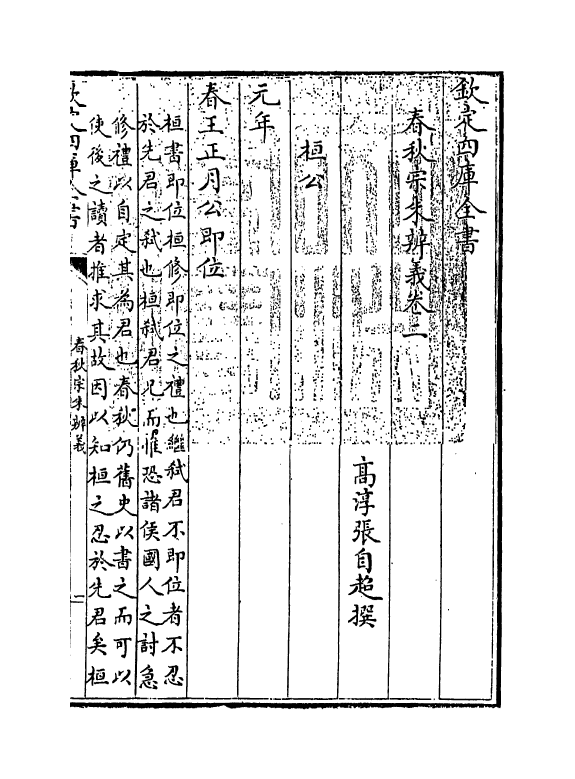 欽定四庫全書
春秋宗朱辨義卷二
高淳張自超撰
桓公
元年
春王正月公即位
桓書即位桓修即位之禮也繼弒君不即位者不忍
於先君之弒也桓弒君兄而惟恐諸侯國人之討急
修禮以自定其為君也春秋仍舊史以書之而可以
使後之讀者推求其故因以知桓之忍於先君矣桓
欽定四庫全書
春秋宗朱辨義